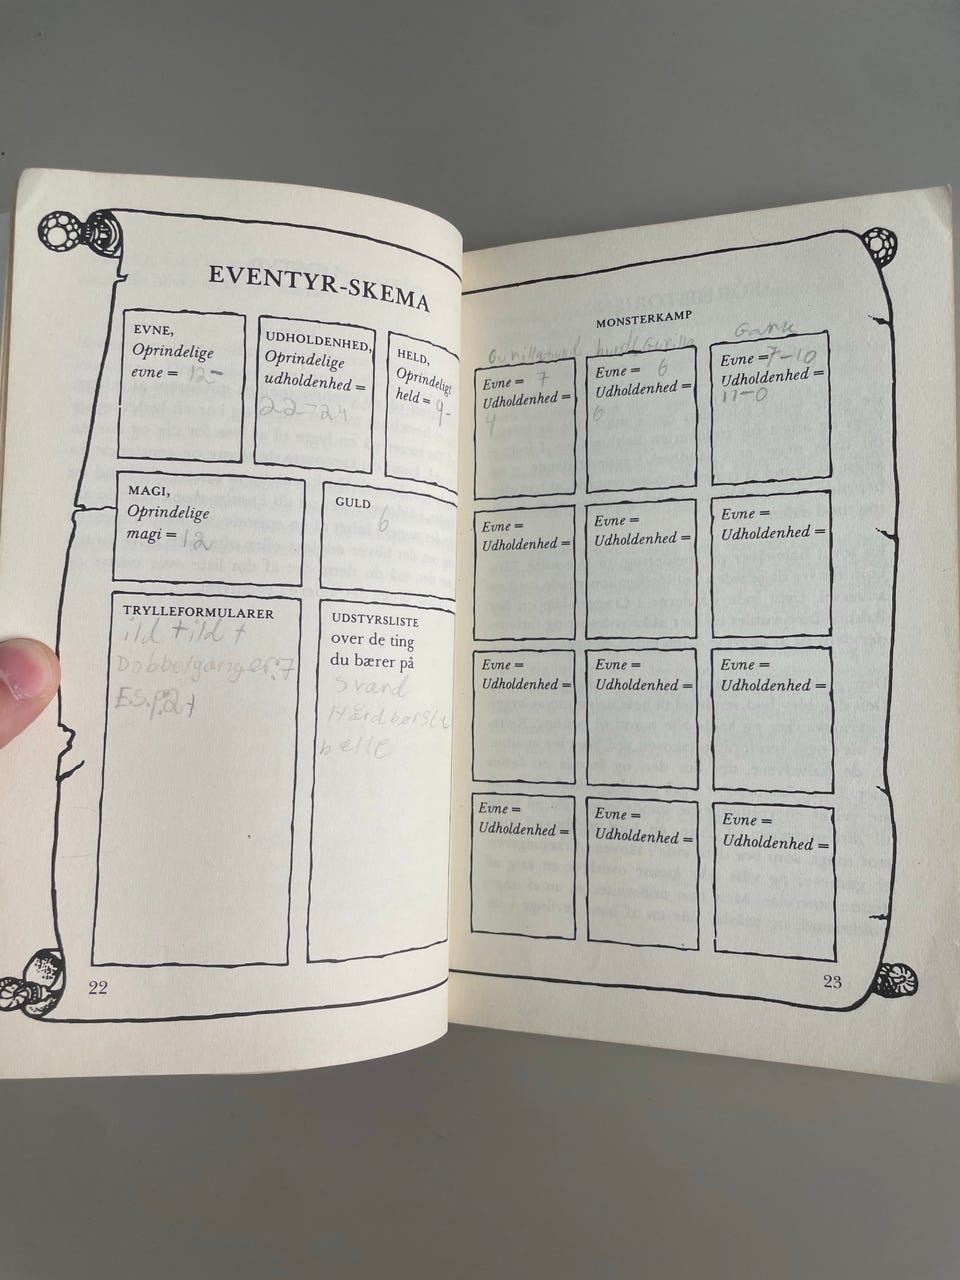 EVENTYR-SKEMA
EVNE,
Oprindelige
evne = 12-
UDHOLDENHED,
Oprindelige
udholdenhed =
22-24
HELD,
Oprindelig
held = 9-
MAGI,
Oprindelige
magi = 12
GULD
6
TRYLLEFORMULARER
ild + ild +
Dobbelgænger: 7
E.S.P. 2+
UDSTYRSLISTE
over de ting
du bærer på
Svand
Hårdbørste
bælte
22
MONSTERKAMP
Evne = 7
Udholdenhed =
4
Gurilla
Evne = 6
Udholdenhed =
6
Evne = 7-10
Udholdenhed =
11-0
Evne =
Udholdenhed =
Evne =
Udholdenhed =
Evne =
Udholdenhed =
Evne =
Udholdenhed =
Evne =
Udholdenhed =
Evne =
Udholdenhed =
Evne =
Udholdenhed =
Evne =
Udholdenhed =
Evne =
Udholdenhed =
23